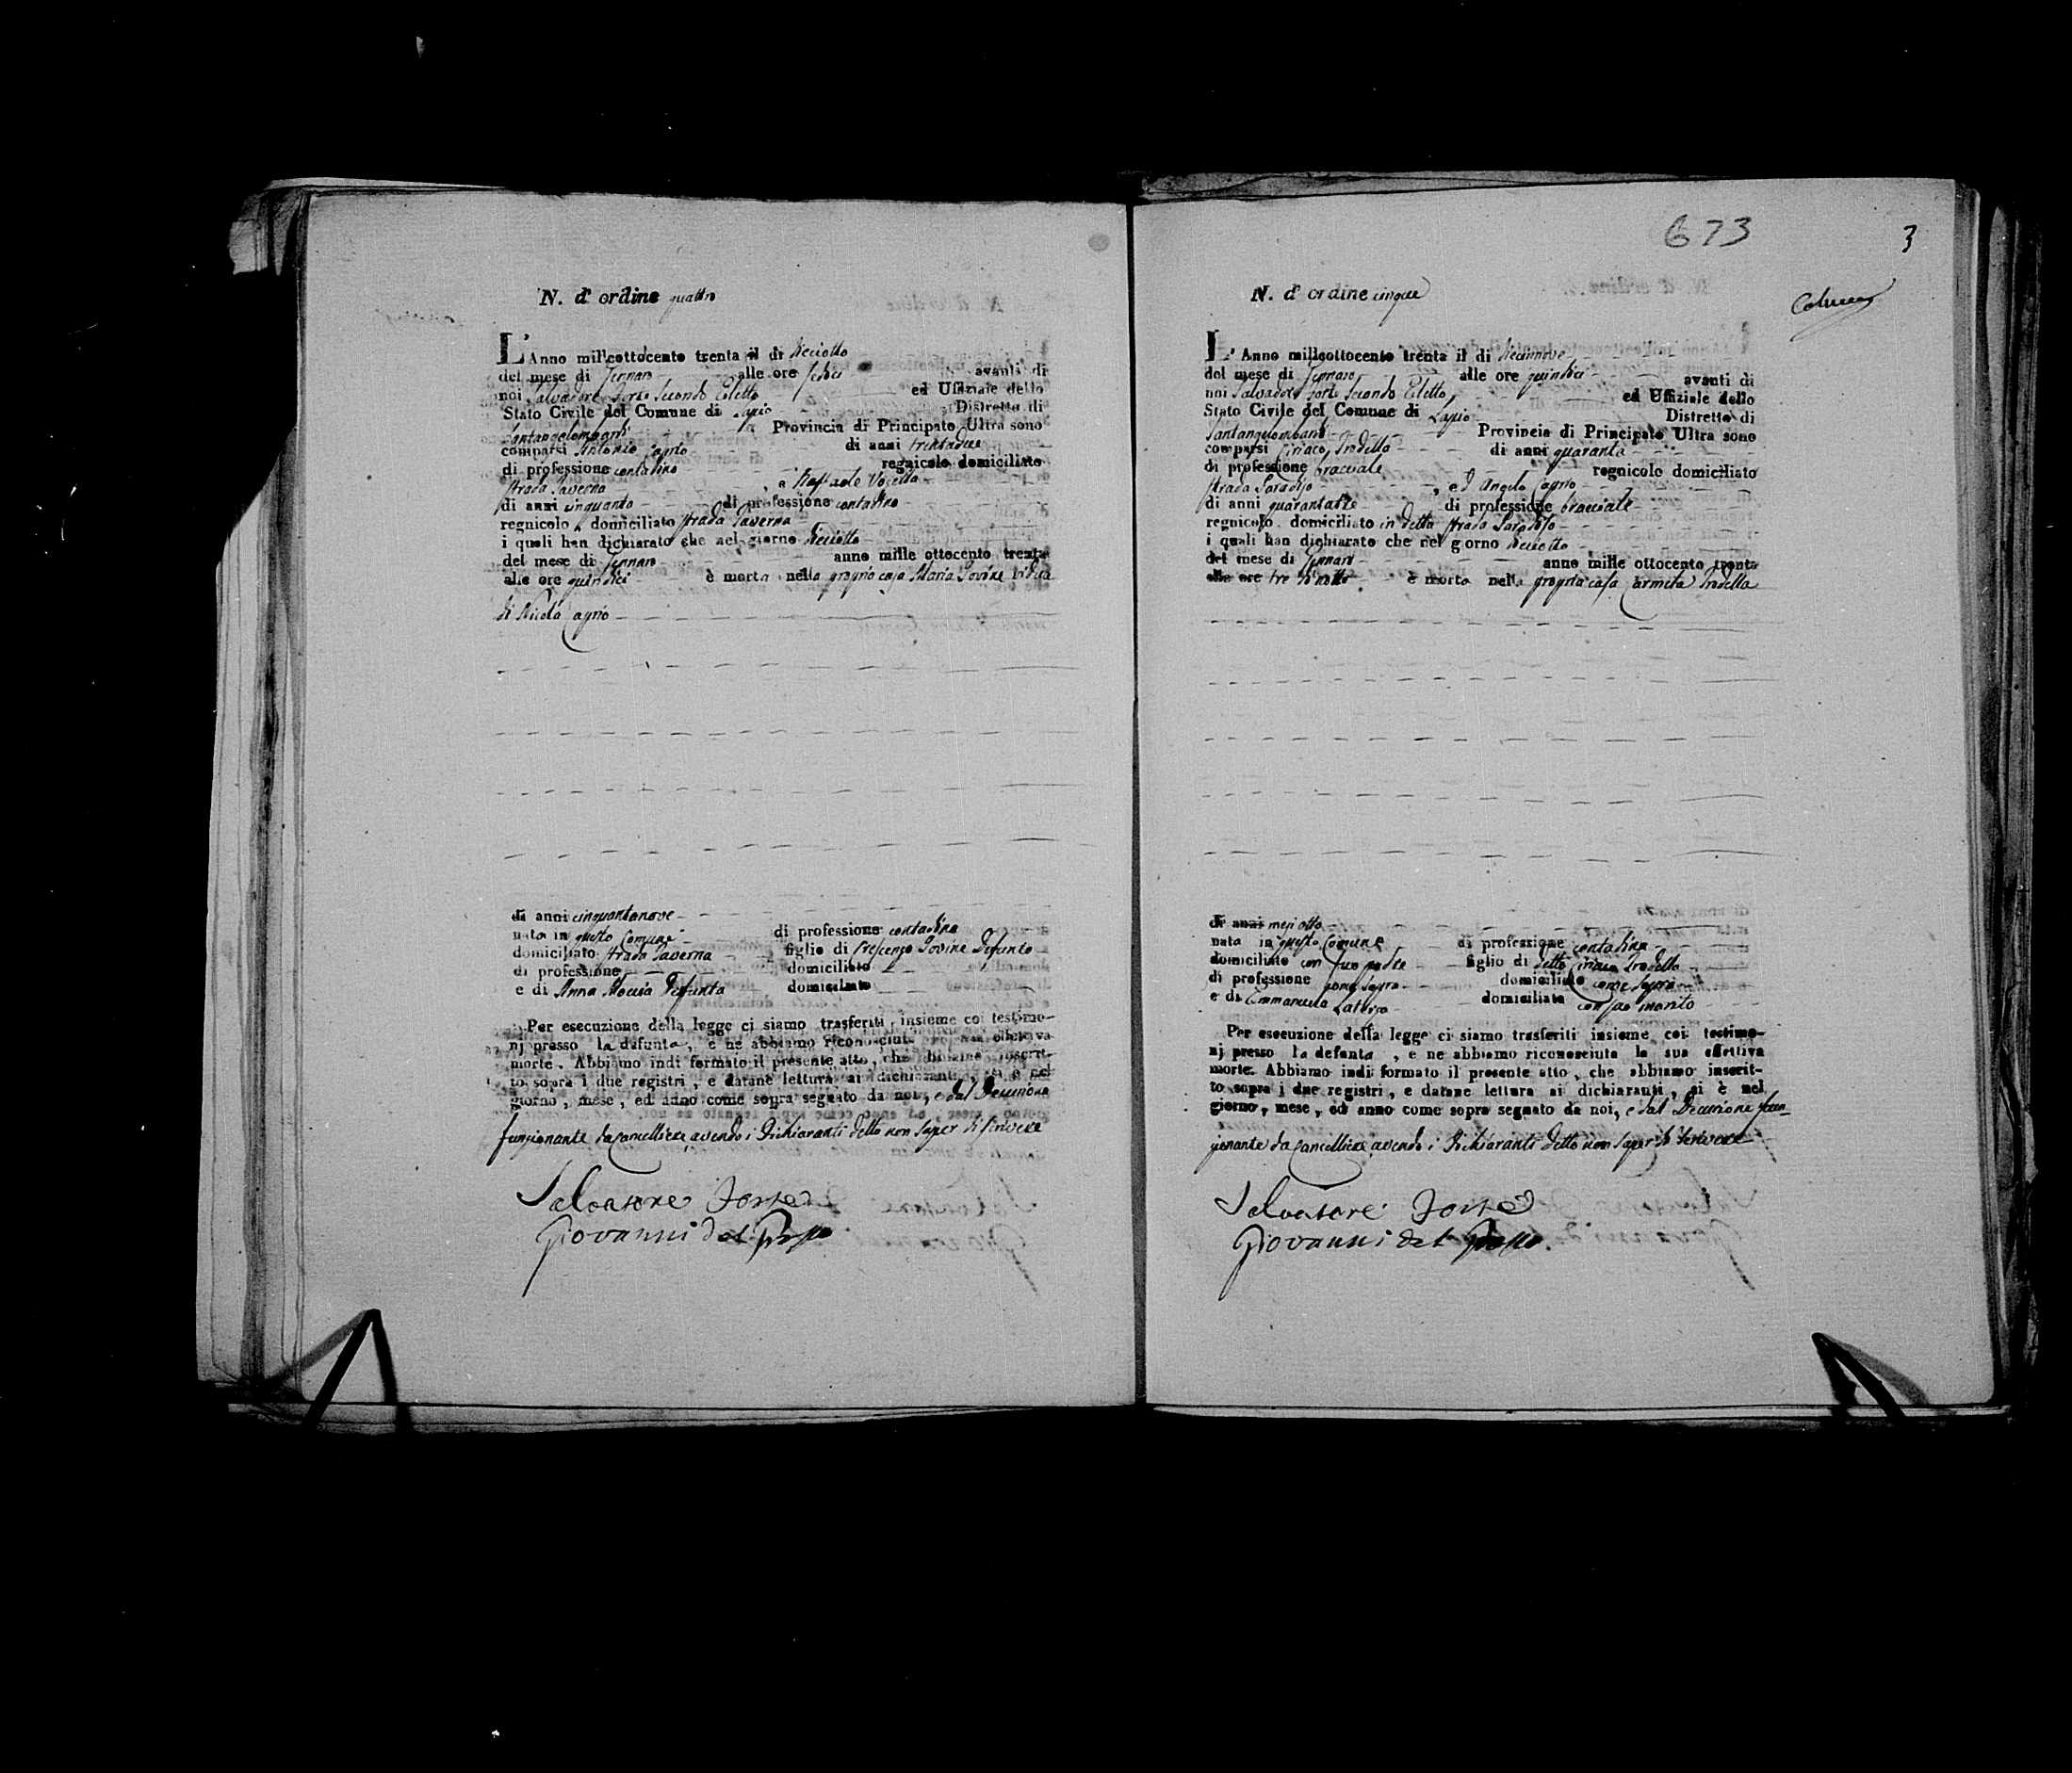 N. d' ordine quattro
L'Anno mill'ottocento trenta il dì Deciotto
del mese di Gennaro alle ore sedici avanti di
noi Salvadore Forte Secondo Eletto ed Uffiziale dello
Stato Civile del Comune di Lapio Distretto di
Santangelolombardi Provincia di Principato Ultra sono
comparsi Antonio Cagno di anni trentadue
di professione contadino regnicolo domiciliato
strada Taverna, e Raffaele
di anni cinquanta di professione contadino
regnicolo, domiciliato strada Taverna
i quali han dichiarato che nel giorno Deciotto
del mese di Gennaro anno mille ottocento trenta
alle ore quindici è morta nella propria casa Maria Jovine vidua
di Nicola Cagno
di anni cinquantanove
nata in questo Comune di professione contadina
domiciliato strada Taverna figlio di Crescenzo Jovine defunto
di professione domiciliato
e di Anna defunta domiciliato
Per esecuzione della legge ci siamo trasferiti insieme coi testimo-
nj presso la defunta, e ne abbiamo riconosciuta la sua effettiva
morte. Abbiamo indi formato il presente atto, che abbiamo inscrit-
to sopra i due registri, e datane lettura ai dichiaranti, si è nel
giorno, mese, ed anno come sopra segnato da noi, e dal Decurione
funzionante da Cancelliere avendo i dichiaranti detto non saper di scrivere
Salvatore Forte
Giovanni del
673
3
N. d' ordine cinque
L' Anno millcottocento trenta il dì Decinnove
del mese di Gennaro alle ore quindici avanti di
noi Salvadore Forte Secondo Eletto, ed Uffiziale dello
Stato Civile del Comune di Lapio Distretto di
Santangelolombardi Provincia di Principato Ultra sono
comparsi Ciriaco Trodella di anni quaranta
di professione bracciale regnicolo domiciliato
strada Paradiso, ed Angelo Cagno
di anni di professione bracciale
regnicolo domiciliato in detta strada Paradiso
i quali han dichiarato che nel giorno Deciotto
del mese di Gennaro anno mille ottocento trenta
alle ore tre di notte è morta nella propria casa Carmela Trodella
di anni mesi otto
nata in questo Comune di professione contadina
domiciliato con suo padre figlio di detto Ciriaco Trodella
di professione come sopra domiciliato come sopra
e di Emmanuela domiciliata con suo marito
Per esecuzione della legge ci siamo trasferiti insieme coi testimo-
nj presso la defunta, e ne abbiamo riconosciuta la sua effettiva
morte. Abbiamo indi formato il presente atto, che abbiamo inscrit-
to sopra i due registri, e datane lettura ai dichiaranti, si è nel
giorno, mese, ed anno come sopra segnato da noi, e dal Decurione fun-
zionante da Cancelliere avendo i dichiaranti detto non saper di scrivere
Salvatore Forte
Giovanni del